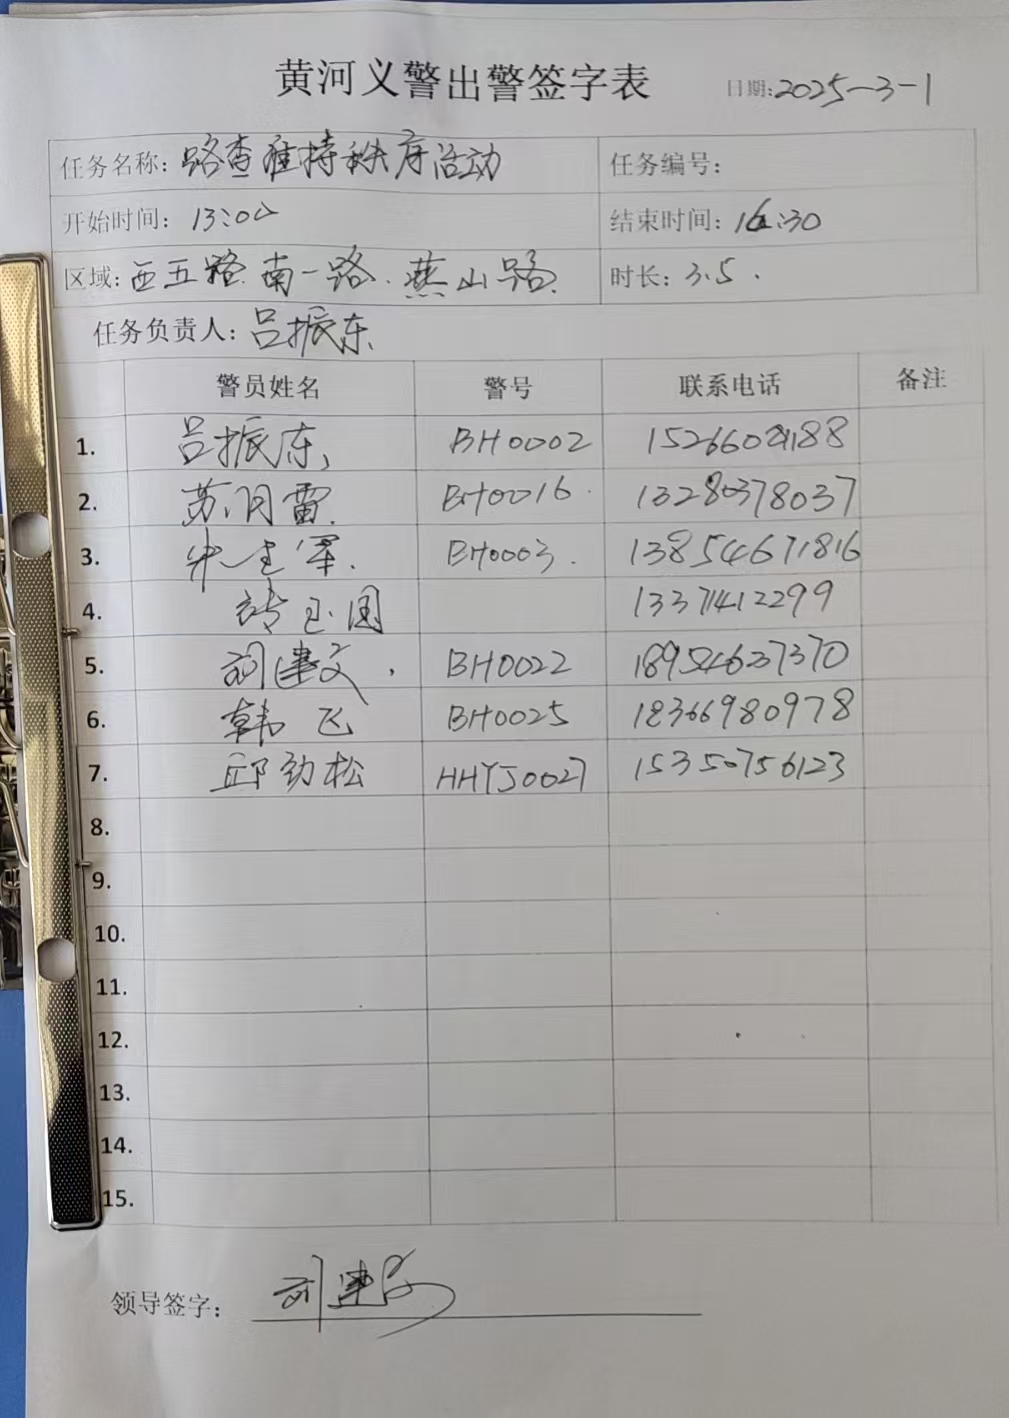 黄河义警出警签字表
日期:2025-3-1
任务名称: 路查维持秩序活动 任务编号:
开始时间: 13:00 结束时间: 16:30
区域: 西五路.南一路.燕山路. 时长: 3.5.
任务负责人: 吕振东
警员姓名 警号 联系电话 备注
1. 吕振东 BH0002
2. 苏月雷 BH0016 13280378037
3. BH0003. 13854671816
4. 国 13371412299
5. 刘建文. BH0022 18954637370
6. 韩飞 BH0025 18366980978
7. 邱劲松 HHYJ0027 15350756123
8.
9.
10.
11.
12.
13.
14.
15.
领导签字: 刘建